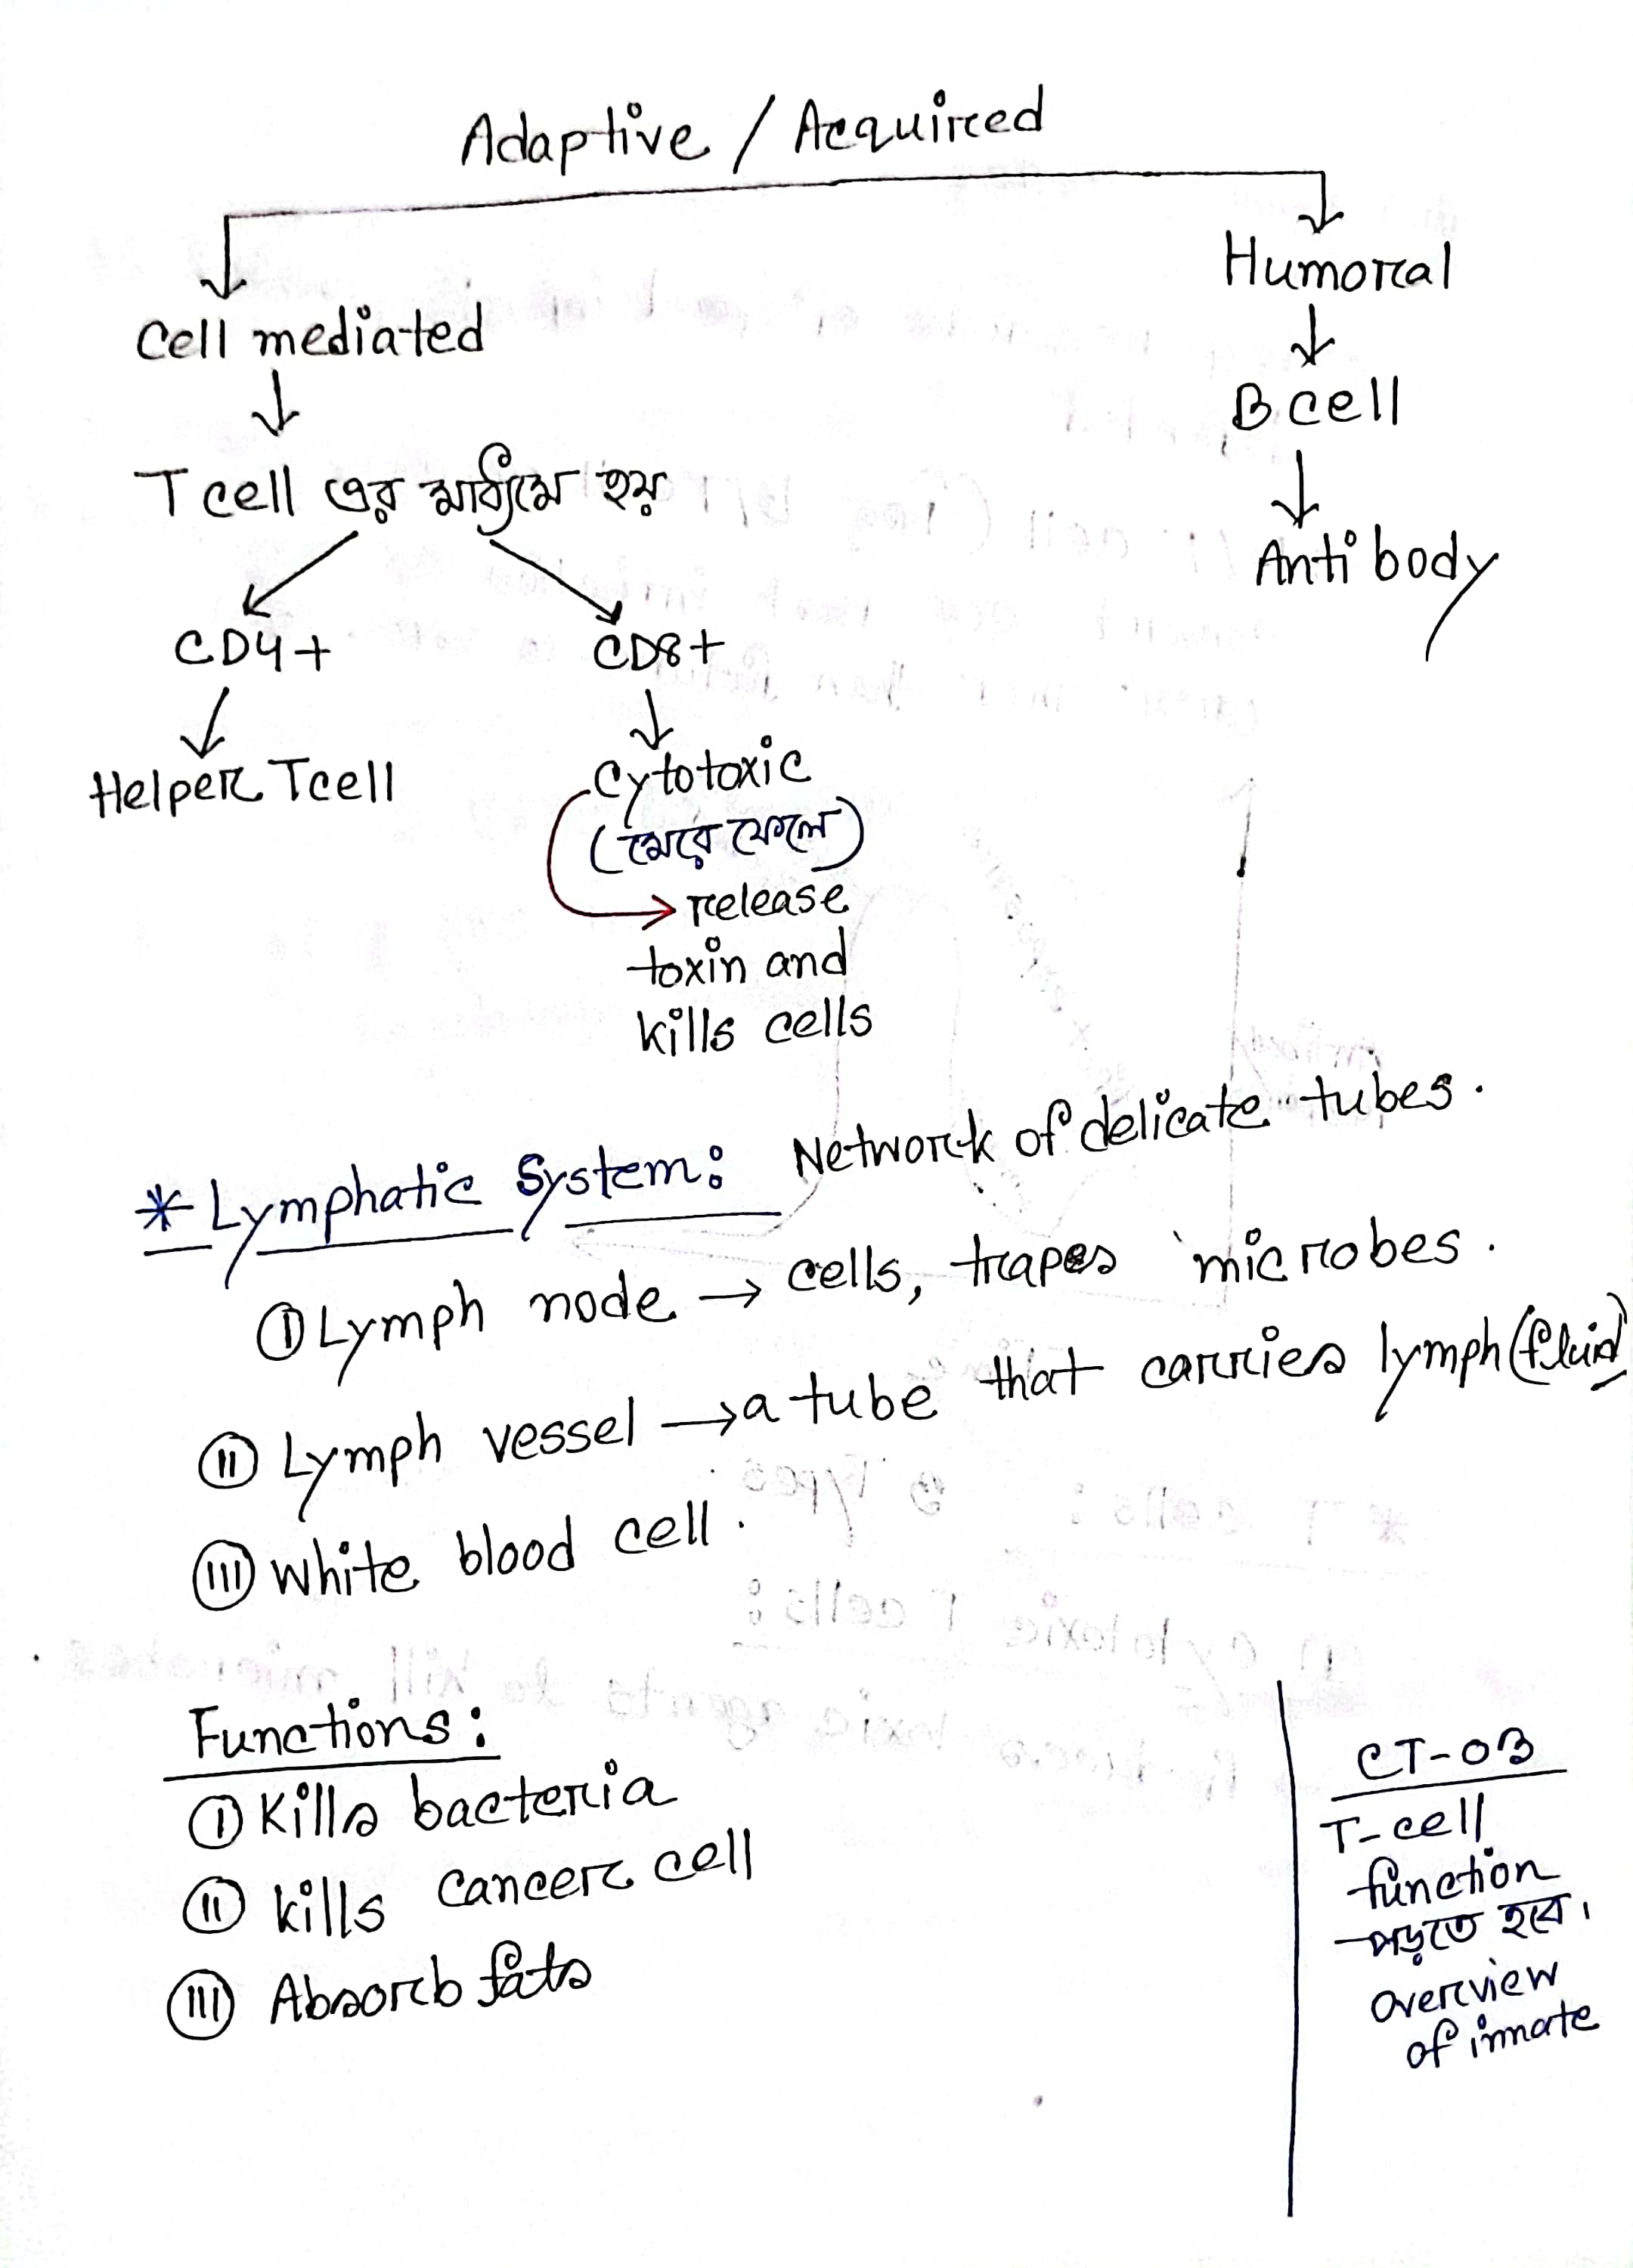 Adaptive / Acquired
Cell mediated
↓
T cell এর মাধ্যমে হয়
CD4+ CD8+
Helper Tcell
Cytotoxic
(মেরে ফেলে)
→ release
toxin and
kills cells
Humoral
↓
B cell
↓
Antibody
* Lymphatic System: Network of delicate tubes.
(I) Lymph node → cells, trapes microbes.
(II) Lymph vessel → a tube that carries lymph (fluid)
(III) White blood cell.
Functions:
(I) Kills bacteria
(II) kills cancer cell
(III) Absorb fats
CT-03
T-cell
function
পড়তে হবে।
overview
of innate